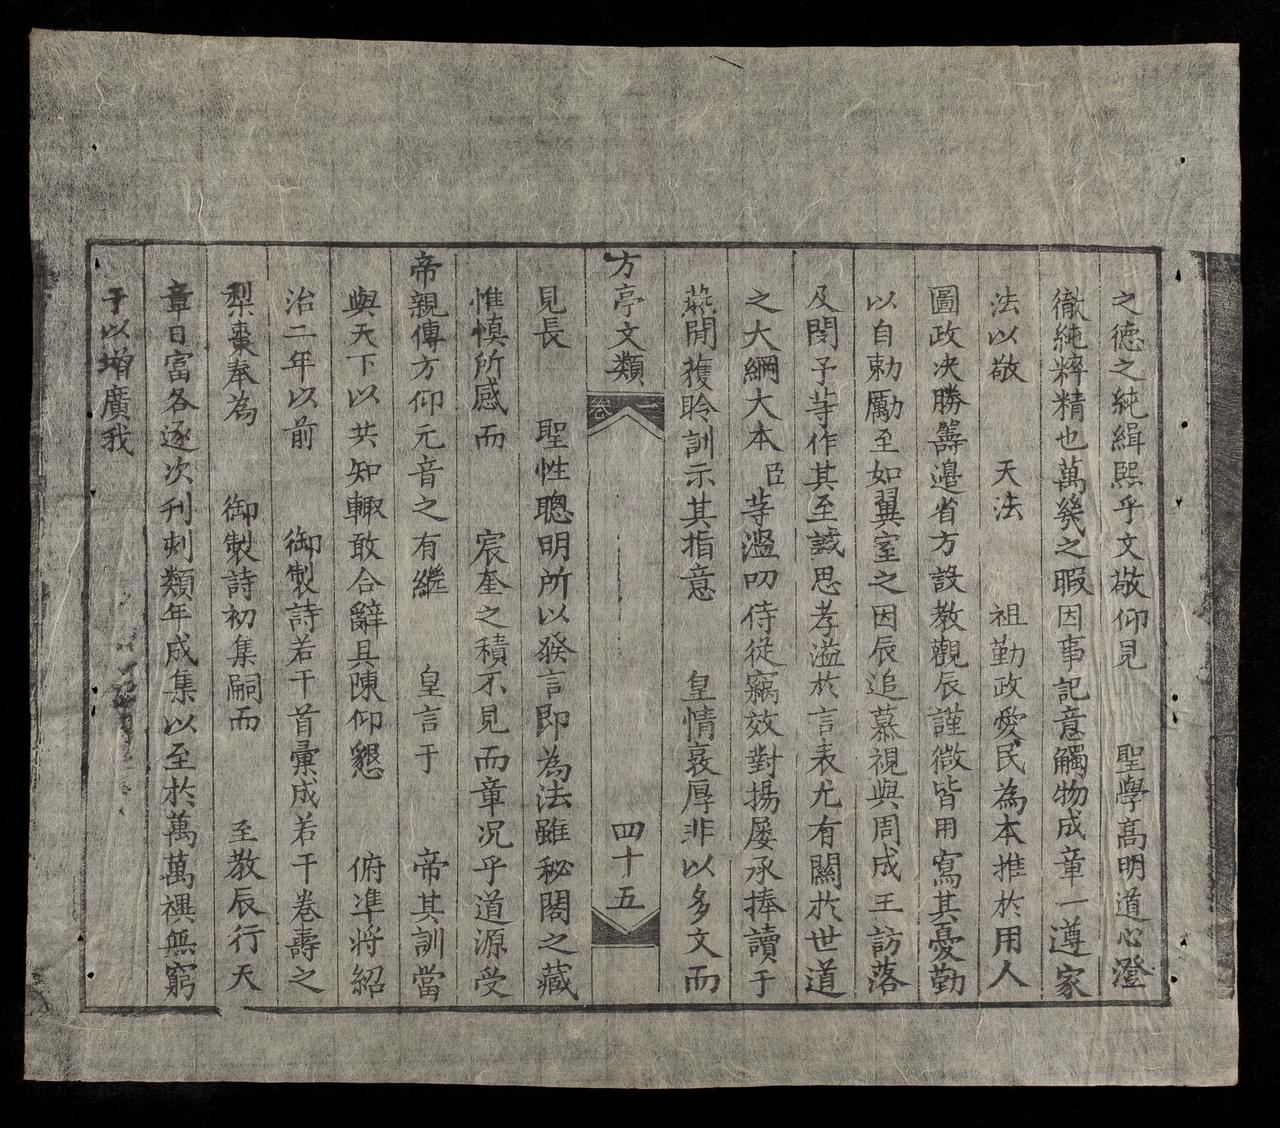 之德之純緝熙乎文敬仰見 聖學高明道心澄
徹純粹精也萬幾之暇因事記意觸物成章一遵家
法以敬 天法 祖勤政愛民為本推於用人
圖政决勝籌邉省方設教觀辰謹微皆用寫其憂勤
以自勅勵至如翼室之因辰追慕視與周成王訪落
及閔予䒭作其至誠思孝溢於言表尤有關於世道
之大綱大本臣䒭溫叨侍從竊效對揚屡承捧讀于
燕閒獲聆訓示其指意 皇情衮厚非以多文而
方亭文類 卷一 四十五
見長 聖性聰明所以發言即為法雖秘閣之藏
惟慎所感而 宸奎之積不見而章况乎道源受
帝親傳方仰元音之有繼 皇言于 帝其訓當
與天下以共知輙敢合辭具陳仰懇 俯凖将紹
治二年以前 御製詩若干首彙成若干卷壽之
梨棗奉為 御製詩初集嗣而 至教辰行天
章日富各逐次刋刺類年成集以至於萬萬禩無窮
于以增廣我